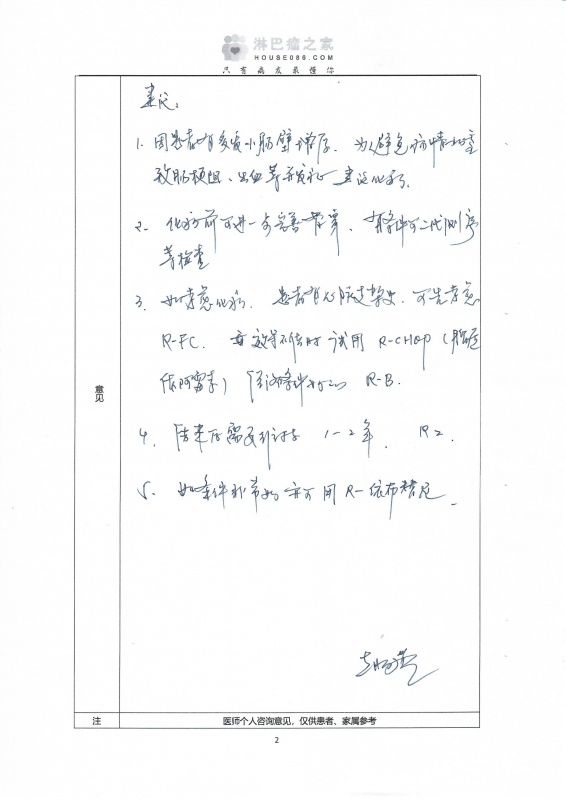 淋巴瘤之家
HOUSE086.COM
只有病友最懂你
建议：
1. 因患者有多发小肠壁增厚，为避免病情加重
致肠梗阻、出血等并发症 建议化疗。
2. 化疗前可进一步完善骨穿、有条件可二代测序
等检查
3. 如考虑化疗，患者有心脏支架史，可先考虑
R-FC. 效果不佳时 试用 R-CHOP（脂质
体阿霉素）经济条件 R-B.
4. 结束后需要 1-2年. R2.
5. 如条件非常好 亦可用 R-依布替尼
意见
注
医师个人咨询意见，仅供患者、家属参考
2